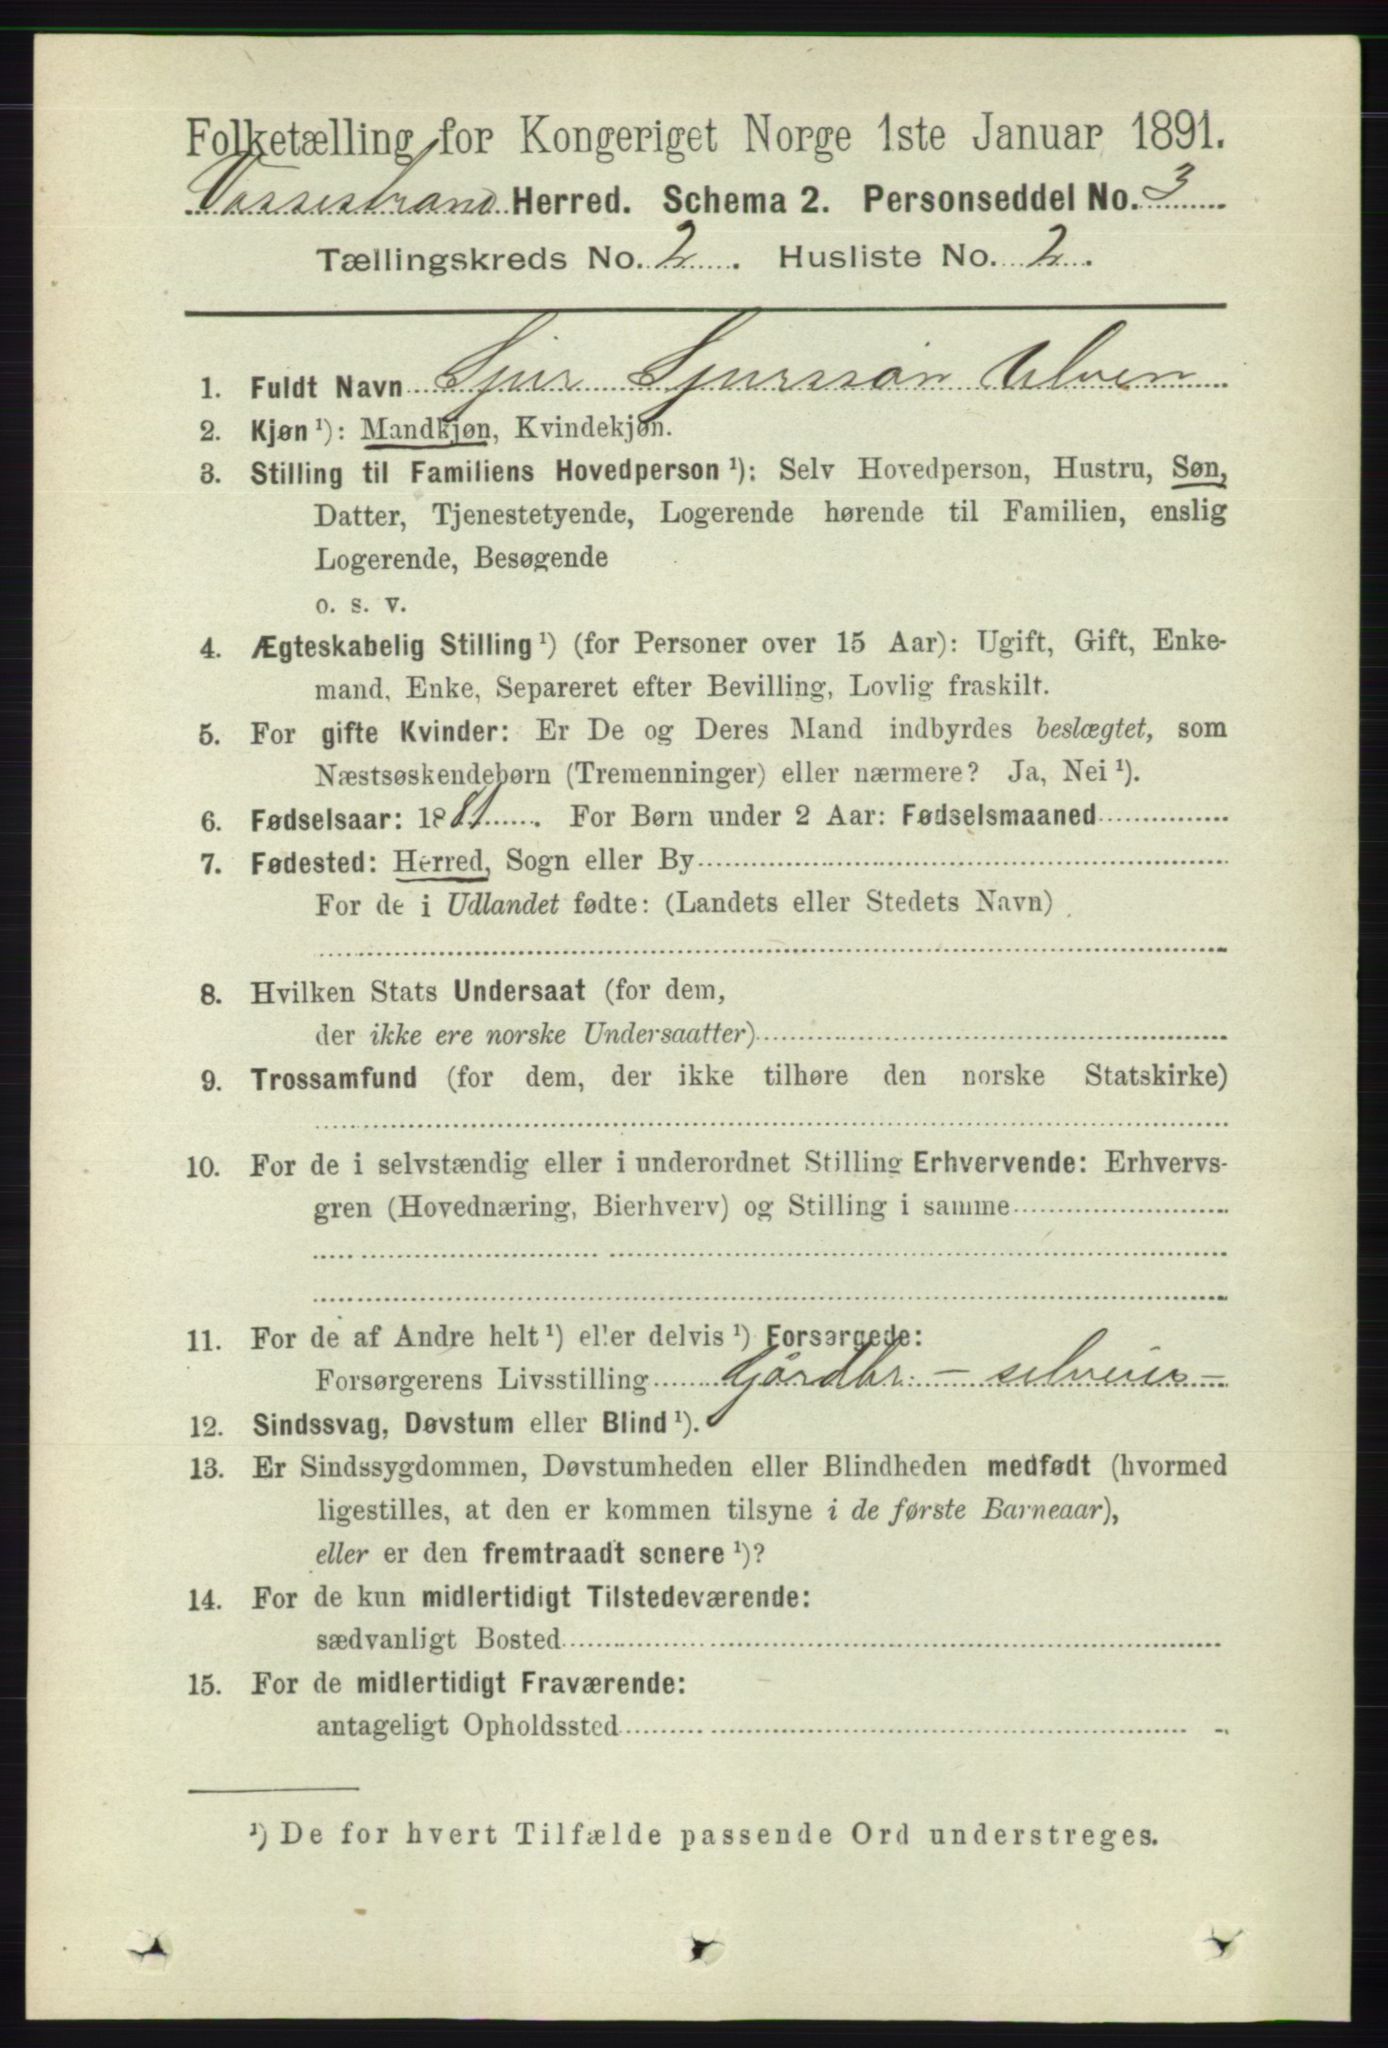 Folketælling for Kongeriget Norge 1ste Januar 1891.
Vossestrand Herred. Schema 2. Personseddel No. 3
Tællingskreds No. 2. Husliste No. 2.
1. Fuldt Navn Sjur Sjurssøn Ulven
2. Kjøn ¹): Mandkjøn, Kvindekjøn.
3. Stilling til Familiens Hovedperson ¹): Selv Hovedperson, Hustru, Søn,
Datter, Tjenestetyende, Logerende hørende til Familien, enslig
Logerende, Besøgende
o. s. v.
4. Ægteskabelig Stilling ¹) (for Personer over 15 Aar): Ugift, Gift, Enke-
mand, Enke, Separeret efter Bevilling, Lovlig fraskilt.
5. For gifte Kvinder: Er De og Deres Mand indbyrdes beslægtet, som
Næstsøskendebørn (Tremenninger) eller nærmere? Ja, Nei ¹).
6. Fødselsaar: 1881. For Børn under 2 Aar: Fødselsmaaned
7. Fødested: Herred, Sogn eller By
For de i Udlandet fødte: (Landets eller Stedets Navn)
8. Hvilken Stats Undersaat (for dem,
der ikke ere norske Undersaatter)
9. Trossamfund (for dem, der ikke tilhøre den norske Statskirke)
10. For de i selvstændig eller i underordnet Stilling Erhvervende: Erhvervs-
gren (Hovednæring, Bierhverv) og Stilling i samme
11. For de af Andre helt ¹) eller delvis ¹) Forsørgede:
Forsørgerens Livsstilling Gårdbr. – selveier –
12. Sindssvag, Døvstum eller Blind ¹).
13. Er Sindssygdommen, Døvstumheden eller Blindheden medfødt (hvormed
ligestilles, at den er kommen tilsyne i de første Barneaar),
eller er den fremtraadt senere ¹)?
14. For de kun midlertidigt Tilstedeværende:
sædvanligt Bosted
15. For de midlertidigt Fraværende:
antageligt Opholdssted
¹) De for hvert Tilfælde passende Ord understreges.